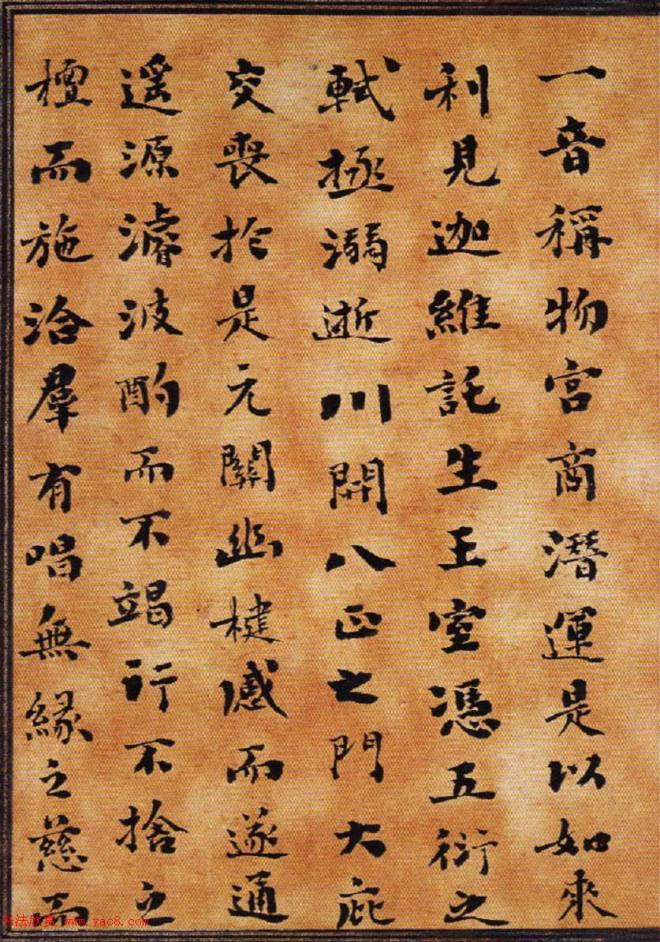 一音稱物宮商潛運是以如來
利見迦維託生王室憑五衍之
軾拯溺逝川開八正之門大庇
交喪於是元關幽楗感而遂通
遥源濬波酌而不竭行不捨之
檀而施洽羣有唱無緣之慈而
www.yac8.com